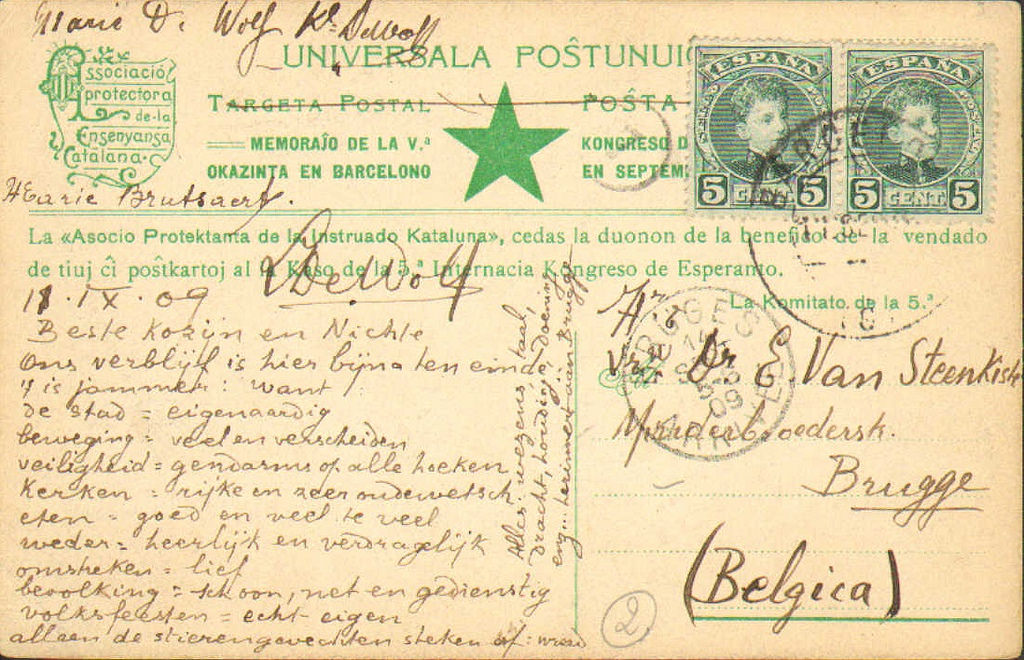 Marie De Wolf K. DeWolf
UNIVERSALA POŜTUNUIĜ
Associació
protectora
de-la
Ensenyansa
Catalana.
TARGETA POSTAL
POŜTA
MEMORAĴO DE LA V.ª
KONGRESO D
OKAZINTA EN BARCELONO
EN SEPTEM
ESPAÑA
5 CENT 5
ESPAÑA
5 CENT 5
Marie Brutsaert.
La «Asocio Protektanta de la Instruado Kataluna», cedas la duonon de la benefico de la vendado
de tiuj ĉi poŝtkartoj al la Kaso de la 5.ª Internacia Kongreso de Esperanto.
DeWolf
La Komitato de la 5.ª
11. IX. 09
Beste Kozijn en Nichte
Ons verblijf is hier bijna ten einde
't is jammer: want
de stad = eigenaardig
beweging = veel en verscheiden
veiligheid = gendarms op alle hoeken
Kerken = rijke en zeer oudewetsch
eten = goed en veel te veel
weder = heerlijk en verdragelijk
omstreken = lief
bevolking = schoon, net en gedienstig
volksfeesten = echt eigen
alleen de stierengevechten steken af: wreed
Alles: wezens, taal,
dracht, houding, doening
enz... herinnert aan Brugge
BRUGES
14
SEPT
09
Hr &
Vr. Dr E. Van Steenkiste
Minderbroedersk.
Brugge
(Belgica)
2